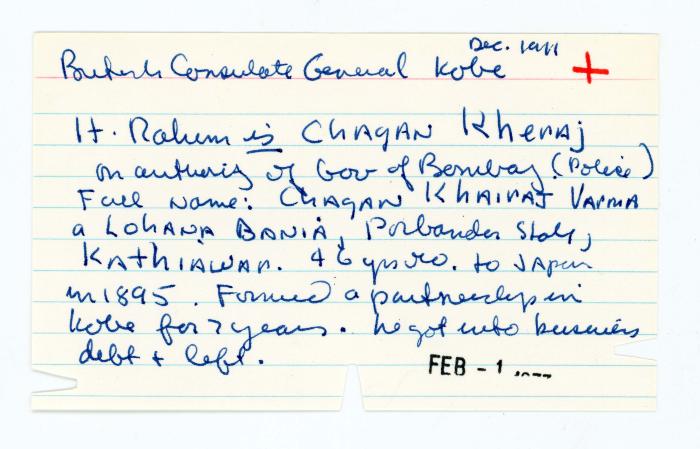 Dec. 1911
British Consulate General Kobe
H. Rahim is CHAGAN Kheraj
on authority of Gov of Bombay (Police)
Full Name: CHAGAN KHAIRAJ VARMA
a LOHANA BANIA, Porbandar State,
KATHIAWAR. 46 yrs o. to JAPAN
in 1895. Formed a partnership in
Kobe for 7 years. he got into business
debt + left.
FEB - 1